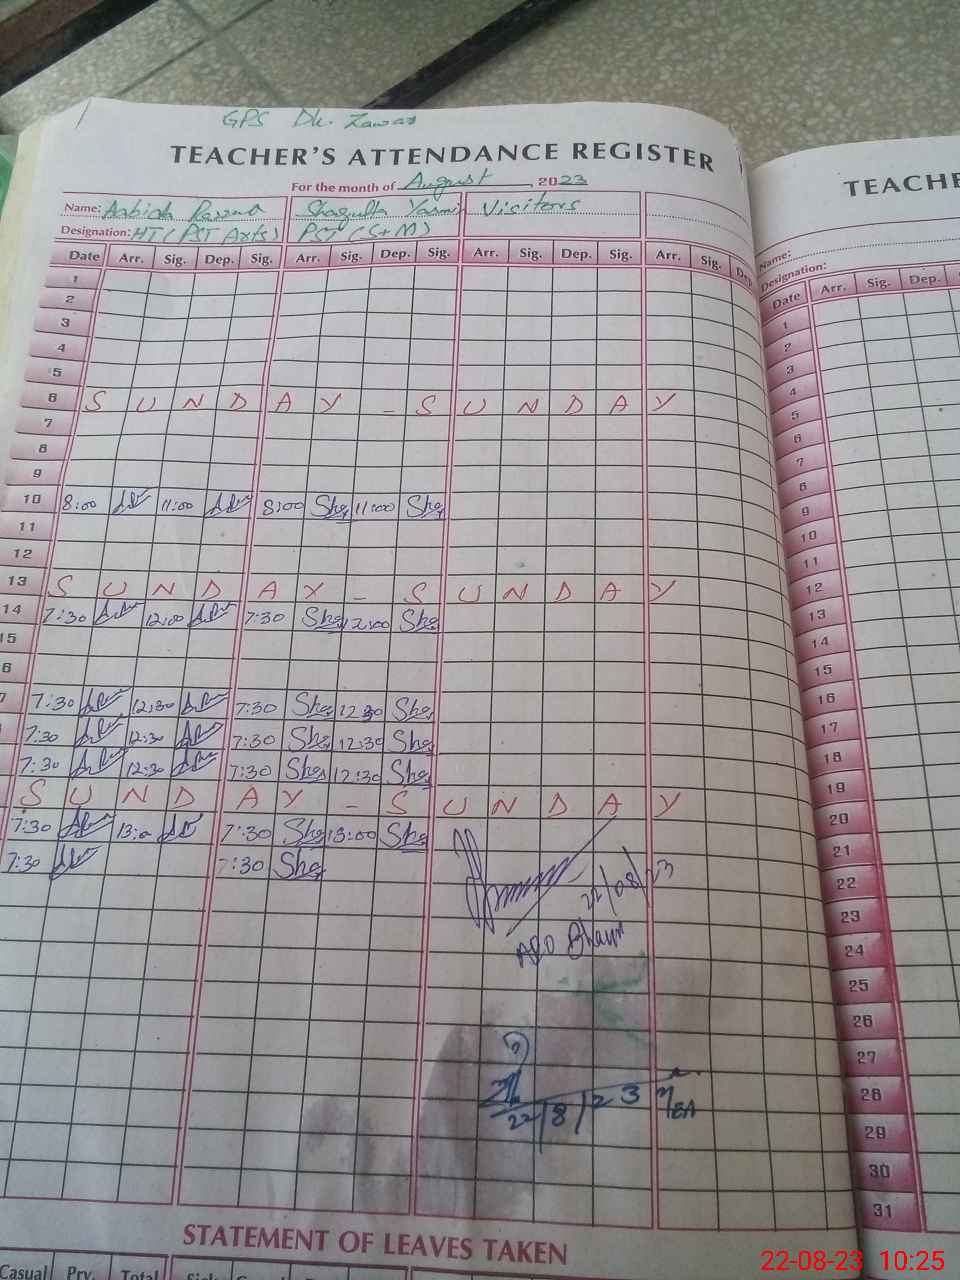 GPS Dk. Zawar
TEACHER'S ATTENDANCE REGISTER
For the month of August, 2023
Name: Aabida Shagufta Yasmi Visitors
Designation: HT (PST Arts) PST (S+M)
Date Arr. Sig. Dep. Sig. Arr. Sig. Dep. Sig. Arr. Sig. Dep. Sig. Arr. Sig. Dep.
1
2
3
4
5
6 S U N D A Y - S U N D A Y
7
8
9
10 8:00 11:00 8:00 Shg 11:00 Shg
11
12
13 S U N D A Y - S U N D A Y
14 7:30 12:00 7:30 Shg 12:00 Shg
15
6
7 7:30 12:30 7:30 Shg 12:30 Shg
7:30 12:30 7:30 Shg 12:30 Shg
7:30 12:30 7:30 Shg 12:30 Shg
S U N D A Y - S U N D A Y
7:30 13:0 7:30 Shg 13:00 Shg
7:30 7:30 Shg
22/08/23
22/8/23 MEA
STATEMENT OF LEAVES TAKEN
Casual Prv. Total
TEACHE
Name:
Designation:
Date Arr. Sig. Dep.
1
2
3
4
5
6
7
8
9
10
11
12
13
14
15
16
17
18
19
20
21
22
23
24
25
26
27
28
29
30
31
22-08-23 10:25